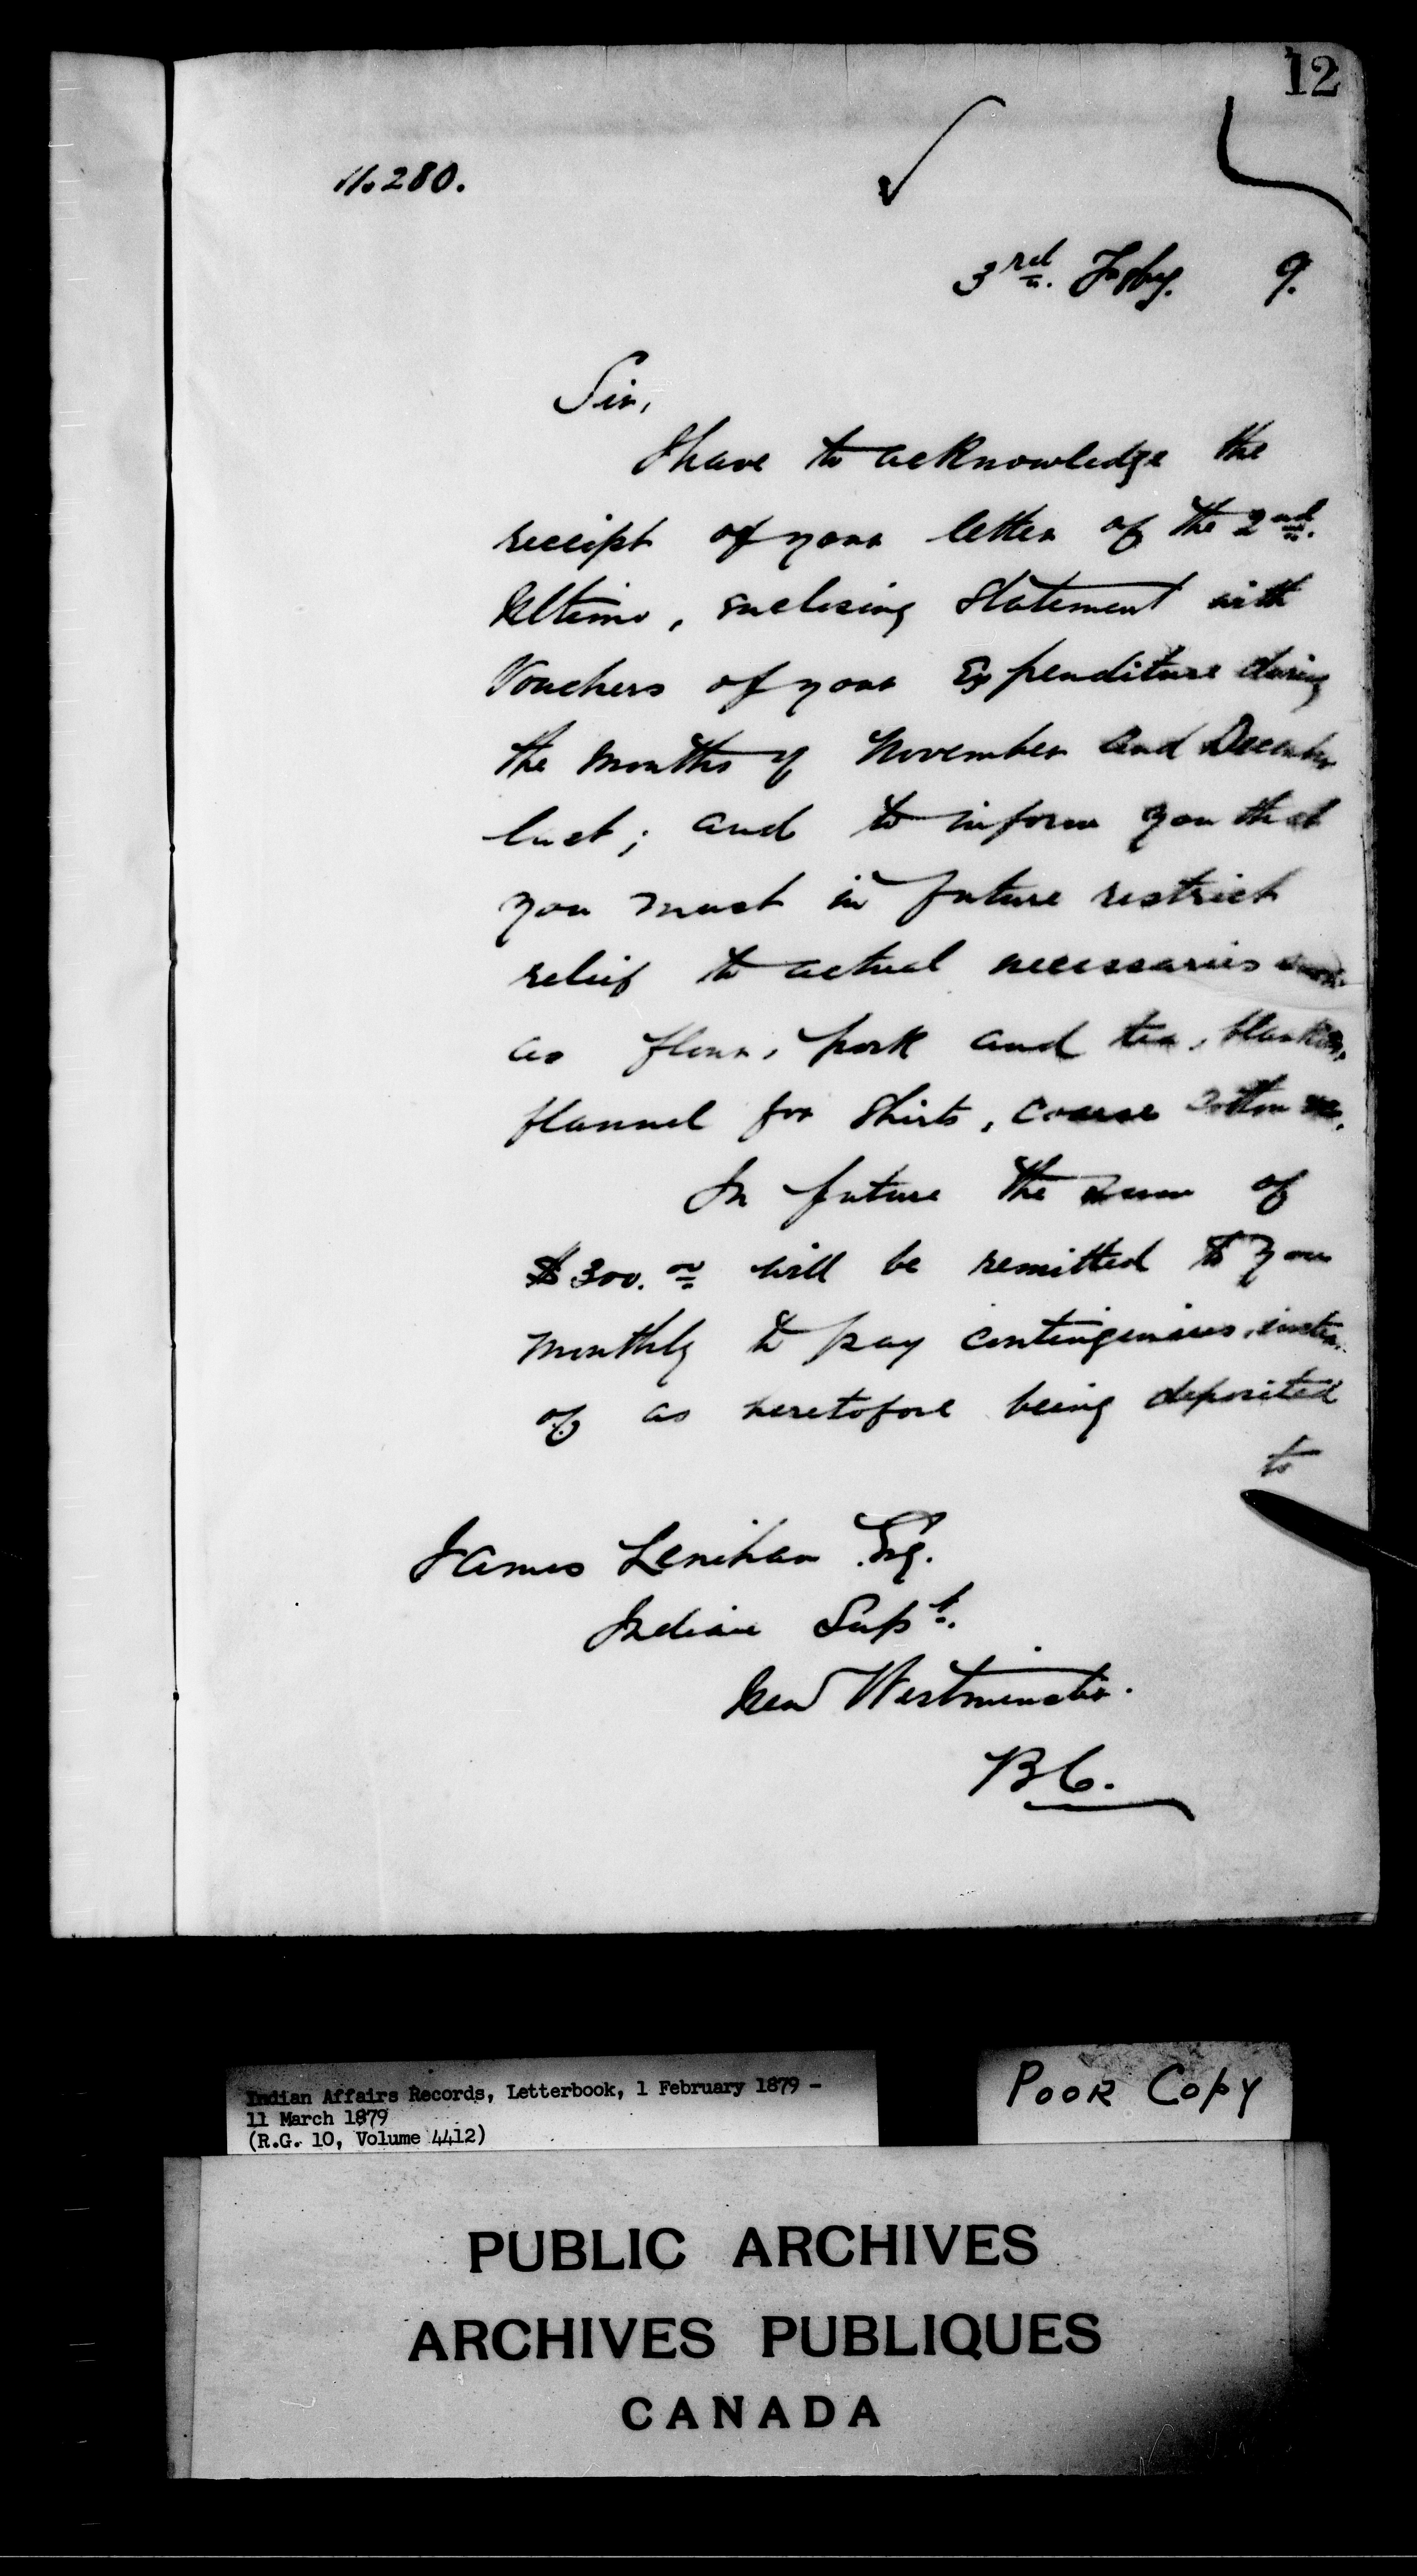 12
No 280.
3rd. Feby. 9.
Sir,
I have to acknowledge the
receipt of your letter of the 2nd.
Ultimo, enclosing Statement with
Vouchers of your Expenditure during
the months of November and December
last; and to inform you that
you must in future restrict
relief to actual necessaries
as flour, pork and tea, blankets,
flannel for Shirts, coarse cotton
In future the sum of
$300.00 will be remitted to you
monthly to pay contingencies, instead
of as heretofore being deposited
to
James Lenihan Esq.
Indian Supt.
New Westminster.
BC.
Indian Affairs Records, Letterbook, 1 February 1879 -
11 March 1879
(R.G. 10, Volume 4412)
POOR COPY
PUBLIC ARCHIVES
ARCHIVES PUBLIQUES
CANADA